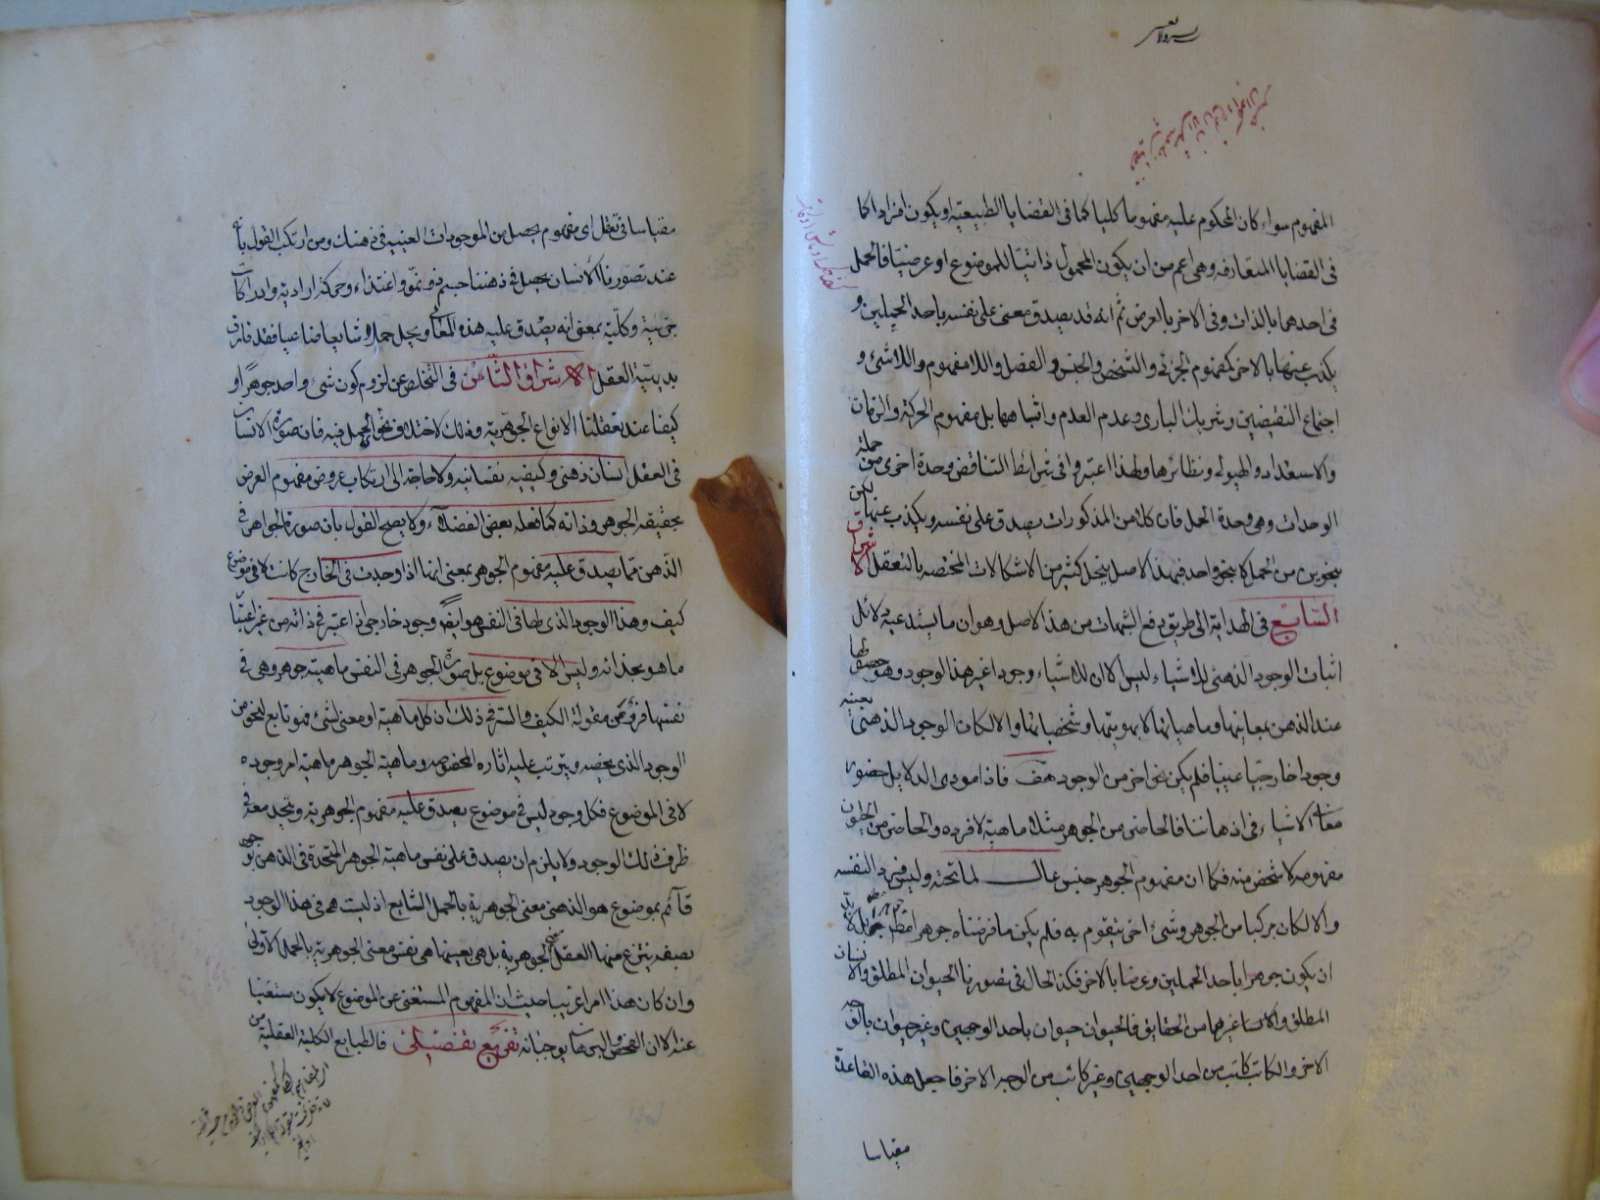 المفهوم سواء كان المحكوم عليه مفهوما كليا كما فى القضايا الطبيعية او يكون افرادا كما
فى القضايا المتعارفه وهى اعم من ان يكون المحمول ذاتيا للموضوع او عرضيا فالحمل
فى احدهما بالذات وفى الاخر بالعرض ثم انه قد يصدق معنى على نفسه باحد الحملين و
يكذب عنها بالاخر كمفهوم الجزئى والتشخص والجنس والفصل واللا مفهوم واللا شئ و
اجتماع النقيضين وشريك البارى وعدم العدم واشباهها بل مفهوم الحركة والزمان
والاستعداد والهيولى ونظائرها ولهذا اعتبروا فى شرائط التناقض وحدة اخرى من جملة
الوحدات وهى وحدة الحمل فان كلا من المذكورات يصدق على نفسه ويكذب عنها لكن
بنحوين من الحمل لا بنحو واحد فبهذا الاصل ينحل كثير من الاشكالات المختصه بالتعقل الاشراق
السابع فى الهداية الى طريق دفع الشبهات من هذا الاصل وهو ان ما يستدعيه دلائل
اثبات الوجود الذهنى للاشياء ليس الا ان للاشياء وجودا غير هذا الوجود وهو حصولها
عند الذهن بمعانيها وماهياتها لا بهوياتها وشخصياتها والا لكان الوجود الذهنى بعينه
وجودا خارجيا عينيا فلم يكن نحو اخر من الوجود هف فاذا مودى الدلايل حضور
معانى الاشياء فى اذهاننا فالحاضر من الجوهر مثلا ماهيته لا فرده والحاضر من الحيوان
مفهومه لا شخص منه فكما ان مفهوم الجوهر جنس عال لما تحته وليس فردا لنفسه
والا لكان مركبا من الجوهر وشئ اخر يتقوم به فلم يكن ما فرضناه جوهرا
ان يكون جوهرا باحد الحملين وعرضا بالاخر فكذا الحال فى تصورنا الحيوان المطلق والانسان
المطلق والانسا غيرهما من الحقايق فالحيوان حيوان باحد الوجهين وغير حيوان بالوجه
الاخر والكاتب كاتب من احد الوجهين وغير كاتب من الوجه الاخر فاجعل هذه القاعدة
مقياسا
مقياسا فى تعقل اى مفهوم يحصل من الموجودات العينيه فى ذهنك ومن ارتكب القول بانه
عند تصورنا الانسان يحصل فى ذهننا جسم ذو نمو واغتذاء وحركة ارادية وادراكات
جزئية وكلية بمعنى انه يصدق عليه هذه المعانى ويحمل حملا شايعا صناعيا فقد فارق
بديهية العقل الاشراق الثامن فى التخلص عن لزوم كون شئ واحد جوهرا و
كيفا عند تعقلنا الانواع الجوهرية وذلك لاختلاف نحوى الحمل فيه فان صورة الانسان
فى العقل انسان ذهنى وكيفيه نفسانيه ولا حاجة الى ارتكاب عروض مفهوم العرض
لحقيقه الجوهر وذاته كما فعله بعض الفضلاء ولا يصح القول بان صورة الجواهر فى
الذهن مما يصدق عليه مفهوم الجوهر بمعنى انها اذا وجدت فى الخارج كانت لا فى موضوع
كيف وهذا الوجود الذى لها فى النفس هو ايضا وجود خارجى اذا اعتبر فى ذاته من غير اعتبار
ما هو بحذائه وليس الا فى موضوع بل صورة الجوهر فى النفس ماهيته جوهر وهى فى
نفسها فرد من مقولة الكيف والسر فى ذلك ان كل ماهية او معنى لشئ فهو تابع لنحو من
الوجود الذى يخصه ويترتب عليه اثاره المخصوصه وماهية الجوهر ماهية امر وجوده
لا فى الموضوع فكل وجود ليس فى موضوع يصدق عليه مفهوم الجوهرية ويتحد معه فى
ظرف ذلك الوجود ولا يلزم ان يصدق على نفس ماهية الجوهر المتحدة فى الذهن بوجود
قائم بموضوع هو الذهن معنى الجوهرية بالحمل الشايع اذ ليست هى فى هذا الوجود
بصفه ينتزع منها العقل معنى الجوهرية بل هى بعينها هى نفس معنى الجوهرية بالحمل الاولى
وان كان هذا امرا غريبا حيث ان المفهوم المستغنى عن الموضوع لا يكون مستغنيا
عنه الا ان الفحص والبرهان يوجبانه تفريع تفصيلى فالطبايع الكلية العقلية من